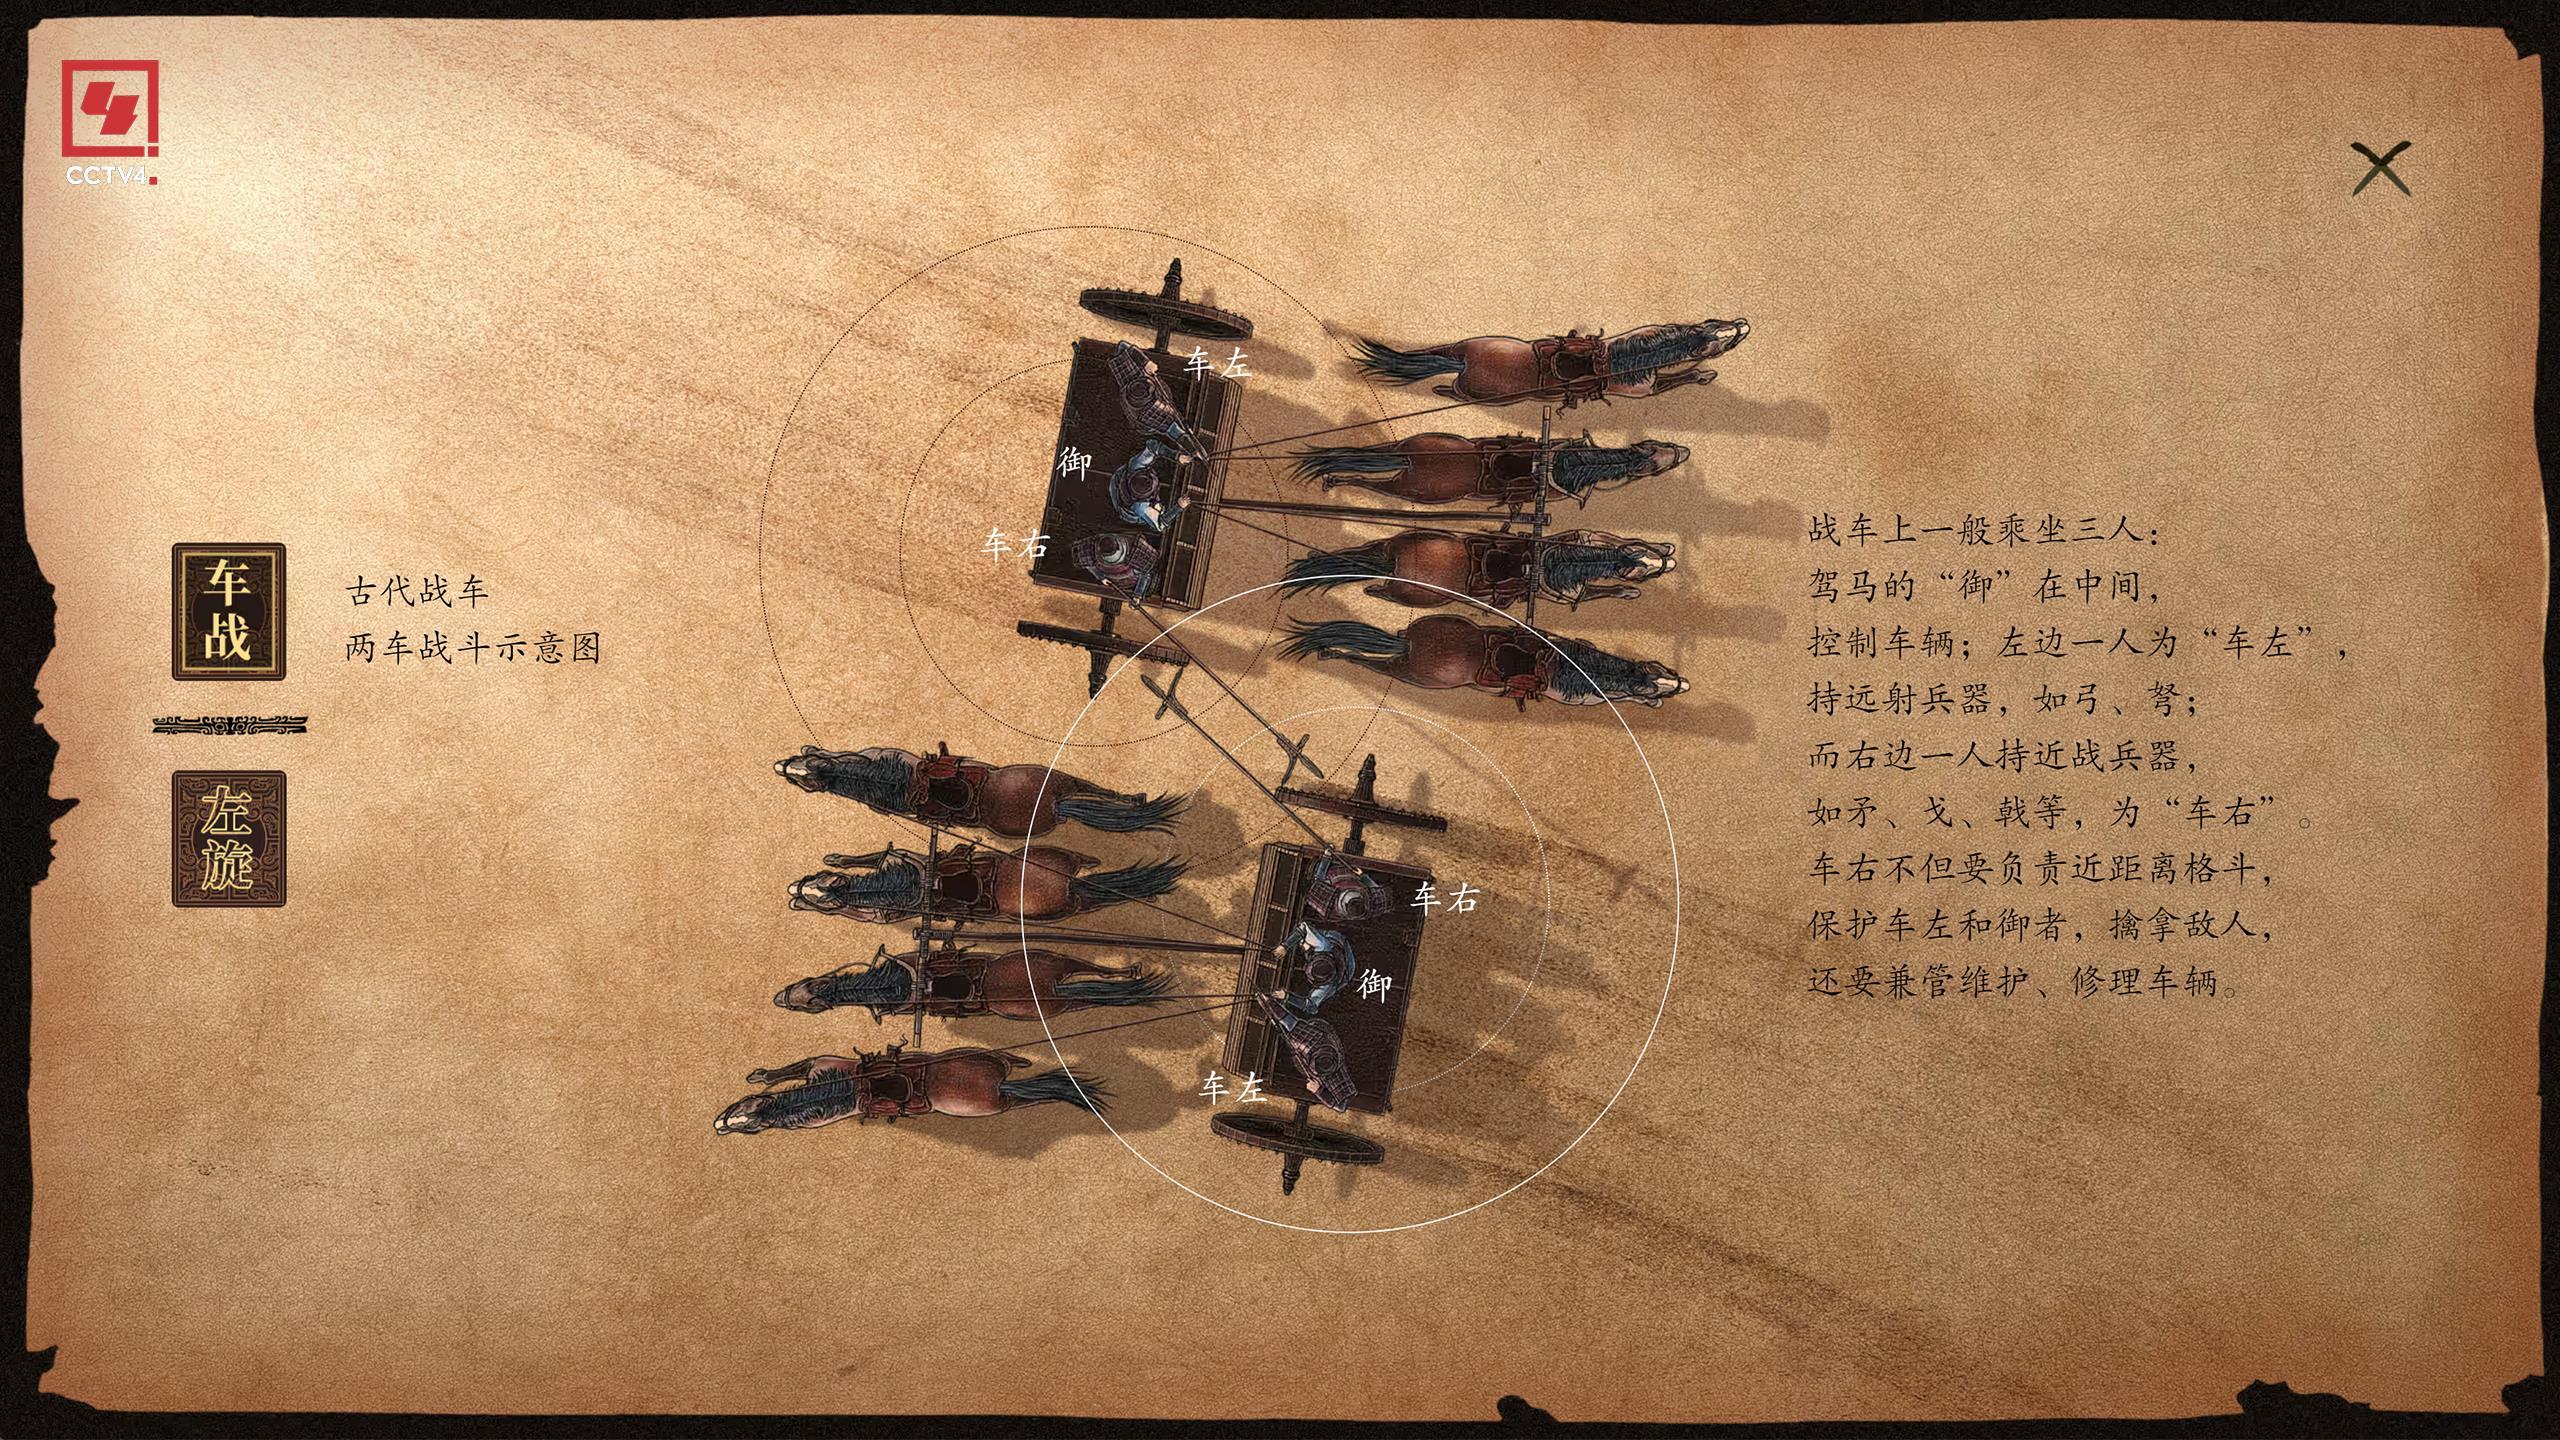 CCTV4.
车战
古代战车
两车战斗示意图
左旋
车左
御
车右
车右
御
车左
战车上一般乘坐三人：
驾马的“御”在中间，
控制车辆；左边一人为“车左”，
持远射兵器，如弓、弩；
而右边一人持近战兵器，
如矛、戈、戟等，为“车右”。
车右不但要负责近距离格斗，
保护车左和御者，擒拿敌人，
还要兼管维护、修理车辆。